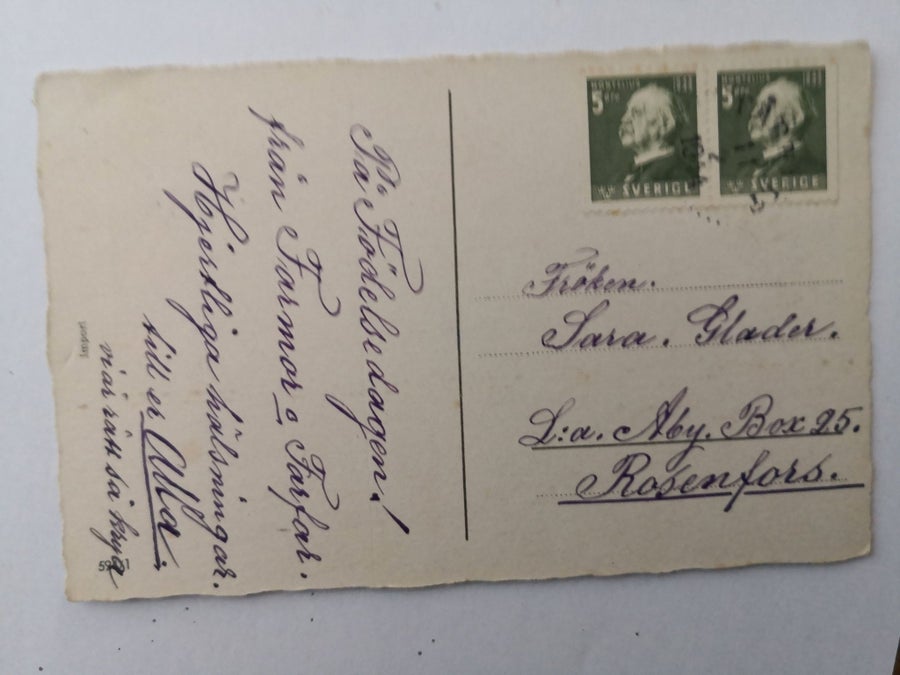 På Födelsedagen!
från Farmor o Farfar.
Hjertliga hälsningar.
till er Alla.
vi är rätt så krya
Import
MONTELIUS
5 ÖRE
SVERIGE
MONTELIUS
5 ÖRE
SVERIGE
Fröken.
Sara. Glader.
L:a. Åby. Box 25.
Rosenfors.